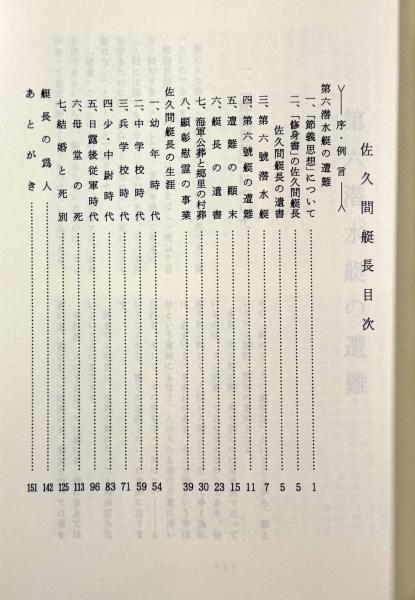 佐久間艇長目次
序・例言
第六潜水艇の遭難
一、「節義思想」について……1
二、「修身書」の佐久間艇長……5
佐久間艇長の遺書……5
三、第六號潜水艇……7
四、第六號艇の遭難……11
五、遭難の顚末……15
六、艇長の遺書……23
七、海軍公葬と郷里の村葬……30
八、顯彰慰霊の事業……39
佐久間艇長の生涯
一、幼年時代……54
二、中学校時代……59
三、兵学校時代……71
四、少・中尉時代……83
五、日露後従軍時代……96
六、母堂の死……113
七、結婚と死別……125
艇長の爲人……142
あとがき……151